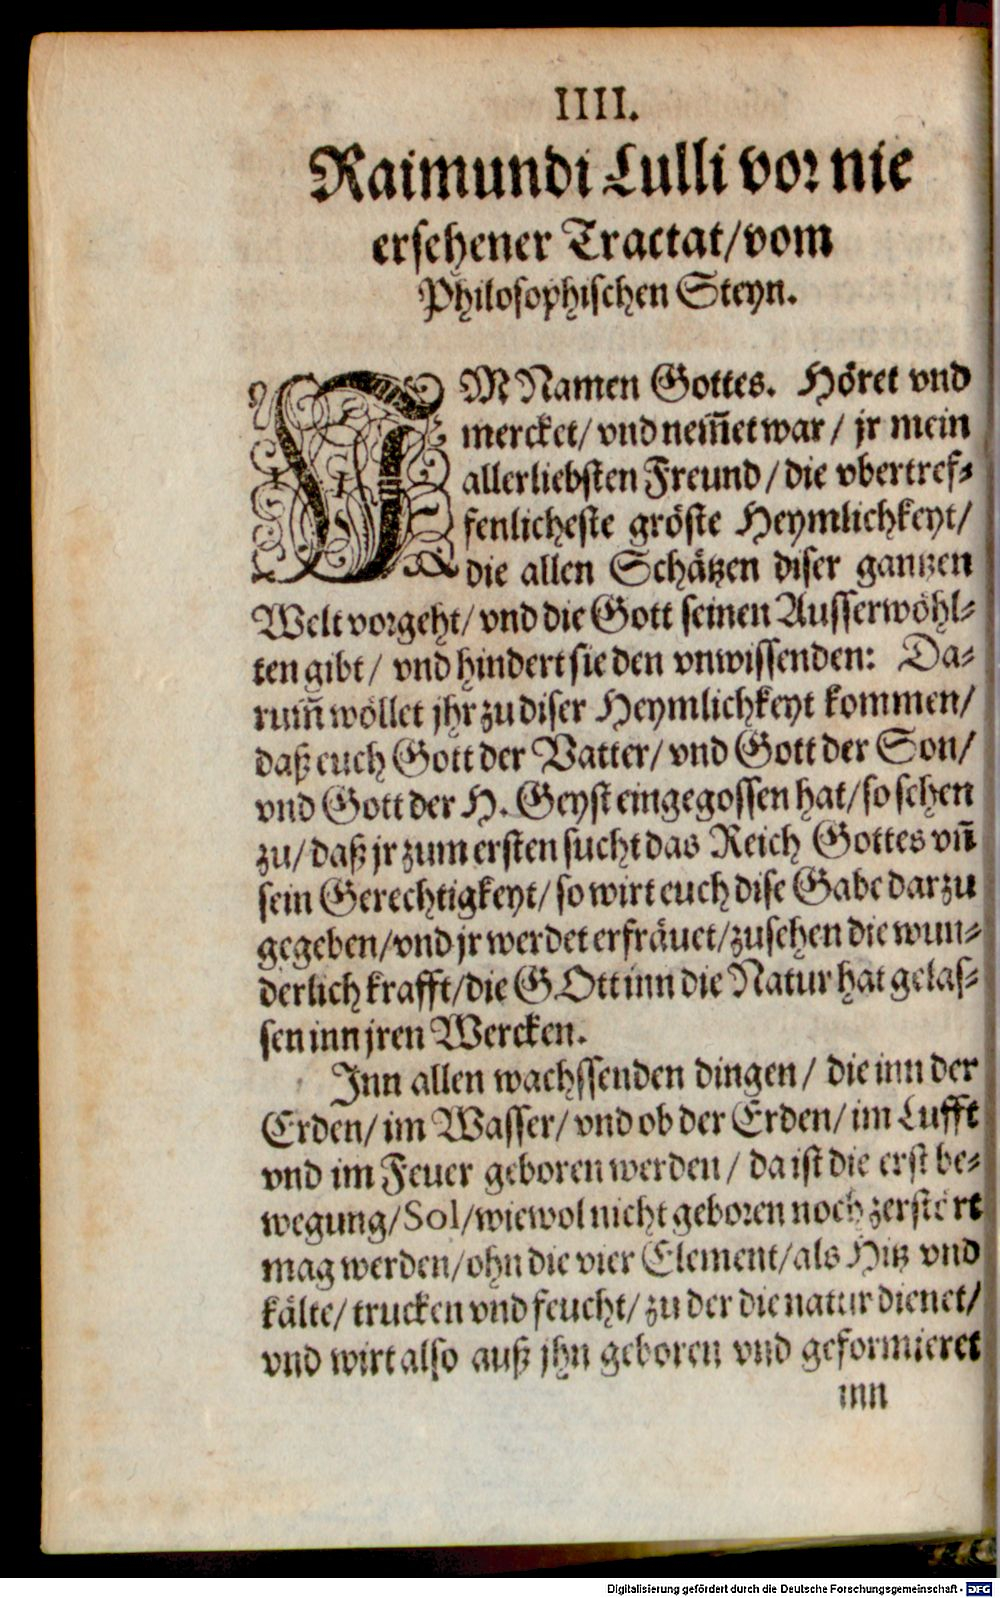 IIII.
Raimundi Lulli vor nie
ersehener Tractat/vom
Philosophischen Steyn.
IM Namen Gottes. Höret vnd
mercket/ vnd nem̃et war/ jr mein
allerliebsten Freund/die vbertref-
fenlicheste gröste Heymlichkeyt/
die allen Schätzen diser gantzen
Welt vorgeht/ vnd die Gott seinen Ausserwöhl-
ten gibt/ vnd hindert sie den vnwissenden: Da-
rum̃ wöllet jhr zu diser Heymlichkeyt kommen/
daß euch Gott der Vatter/ vnd Gott der Son/
vnd Gott der H. Geyst eingegossen hat/so sehen
zu/daß jr zum ersten sucht das Reich Gottes vñ
sein Gerechtigkeyt/ so wirt euch dise Gabe darzu
gegeben/vnd jr werdet erfräuet/zusehen die wun-
derlich krafft/die GOtt inn die Natur hat gelas-
sen inn jren Wercken.
Inn allen wachssenden dingen/ die inn der
Erden/im Wasser/vnd ob der Erden/im Lufft
vnd im Feuer geboren werden/ da ist die erst be-
wegung/Sol/wiewol nicht geboren noch zerstört
mag werden/ohn die vier Element/als Hitz vnd
kälte/trucken vnd feucht/zu der die natur dienet/
vnd wirt also auß jhn geboren vnd geformieret
inn
Digitalisierung gefördert durch die Deutsche Forschungsgemeinschaft - DFG